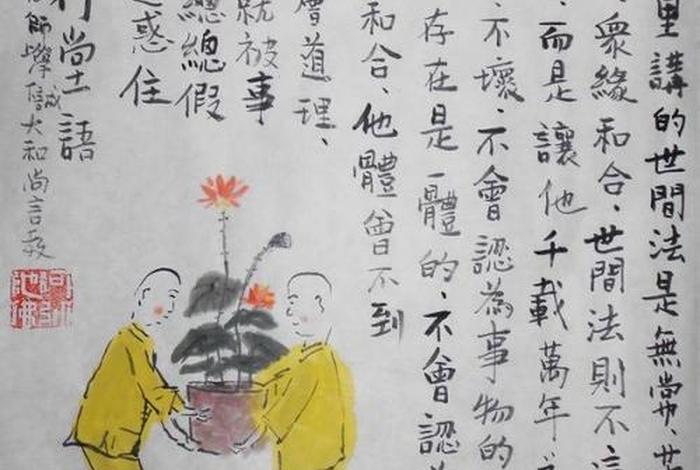 里講的世間法是無常、
衆緣和合、世間法則不
、而是讓他千載萬年
不壞、不會認為事物的
存在是一體的、不會認
和合、他體會不到
會道理、
就被事
總總假
惑住
行堂語
師學誠大和尚言教